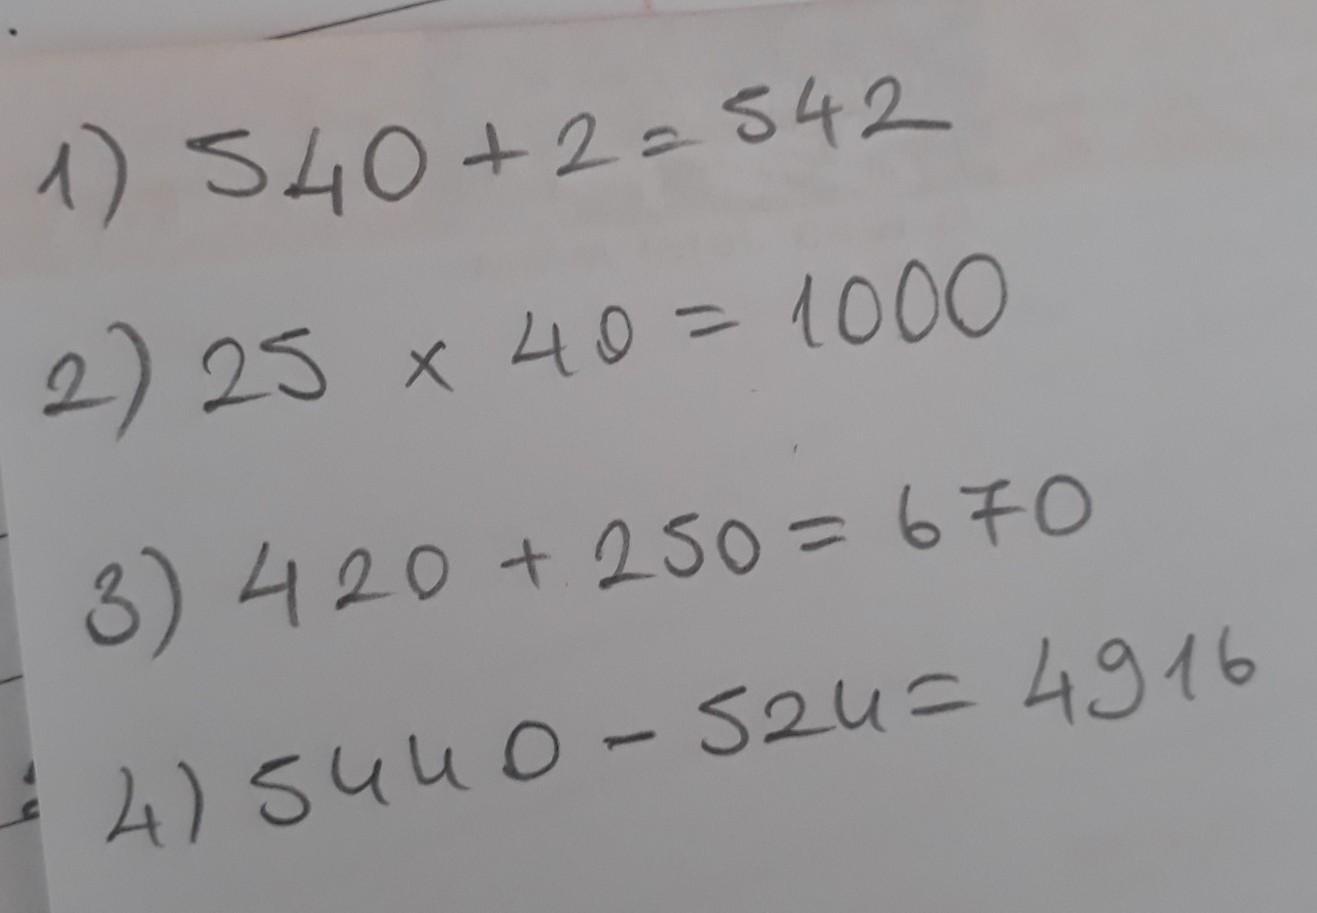 1) 540 + 2 = 542
2) 25 x 40 = 1000
3) 420 + 250 = 670
4) 5440 - 524 = 4916